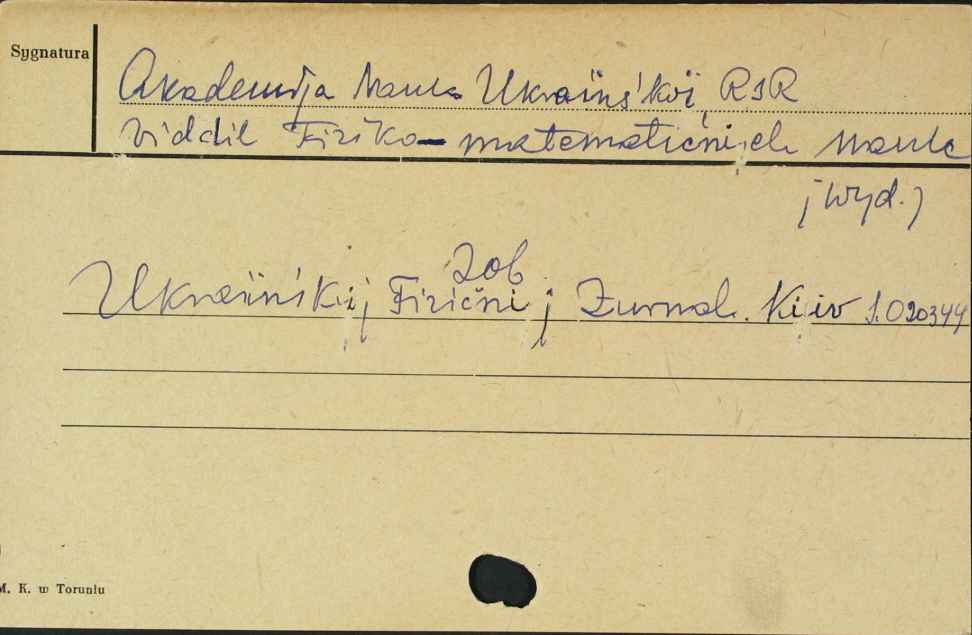 Sygnatura
Akademija Nauk Ukraïns'koï RSR
Viddil Fiziko-matematičnich nauk
(wyd.)
Zob
Ukraïns'kij Fizični j Žurnal. Kiiv S.020344
M. K. w Toruniu